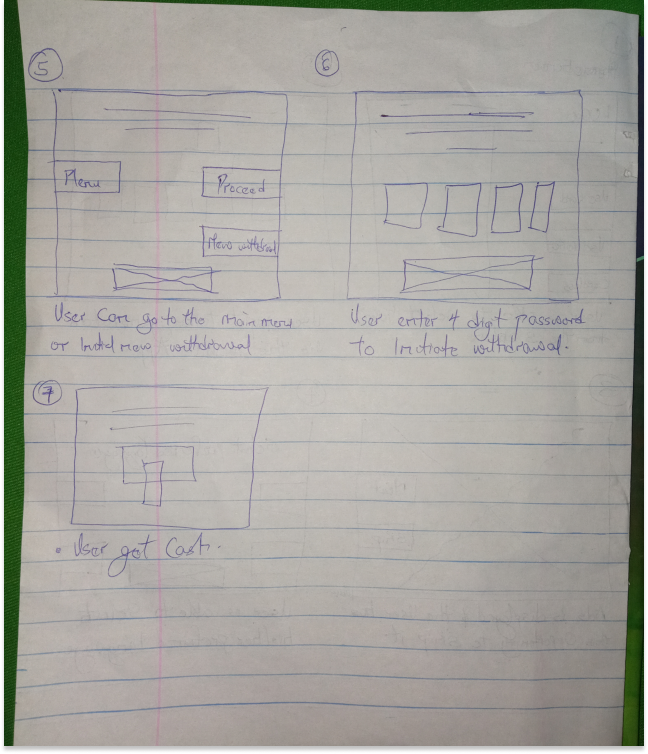 5
6
Menu
Proceed
New withdrawal
User can go to the main menu
or
new withdrawal
User enter 4 digit password
to Initiate withdrawal.
7
• User get Cash.